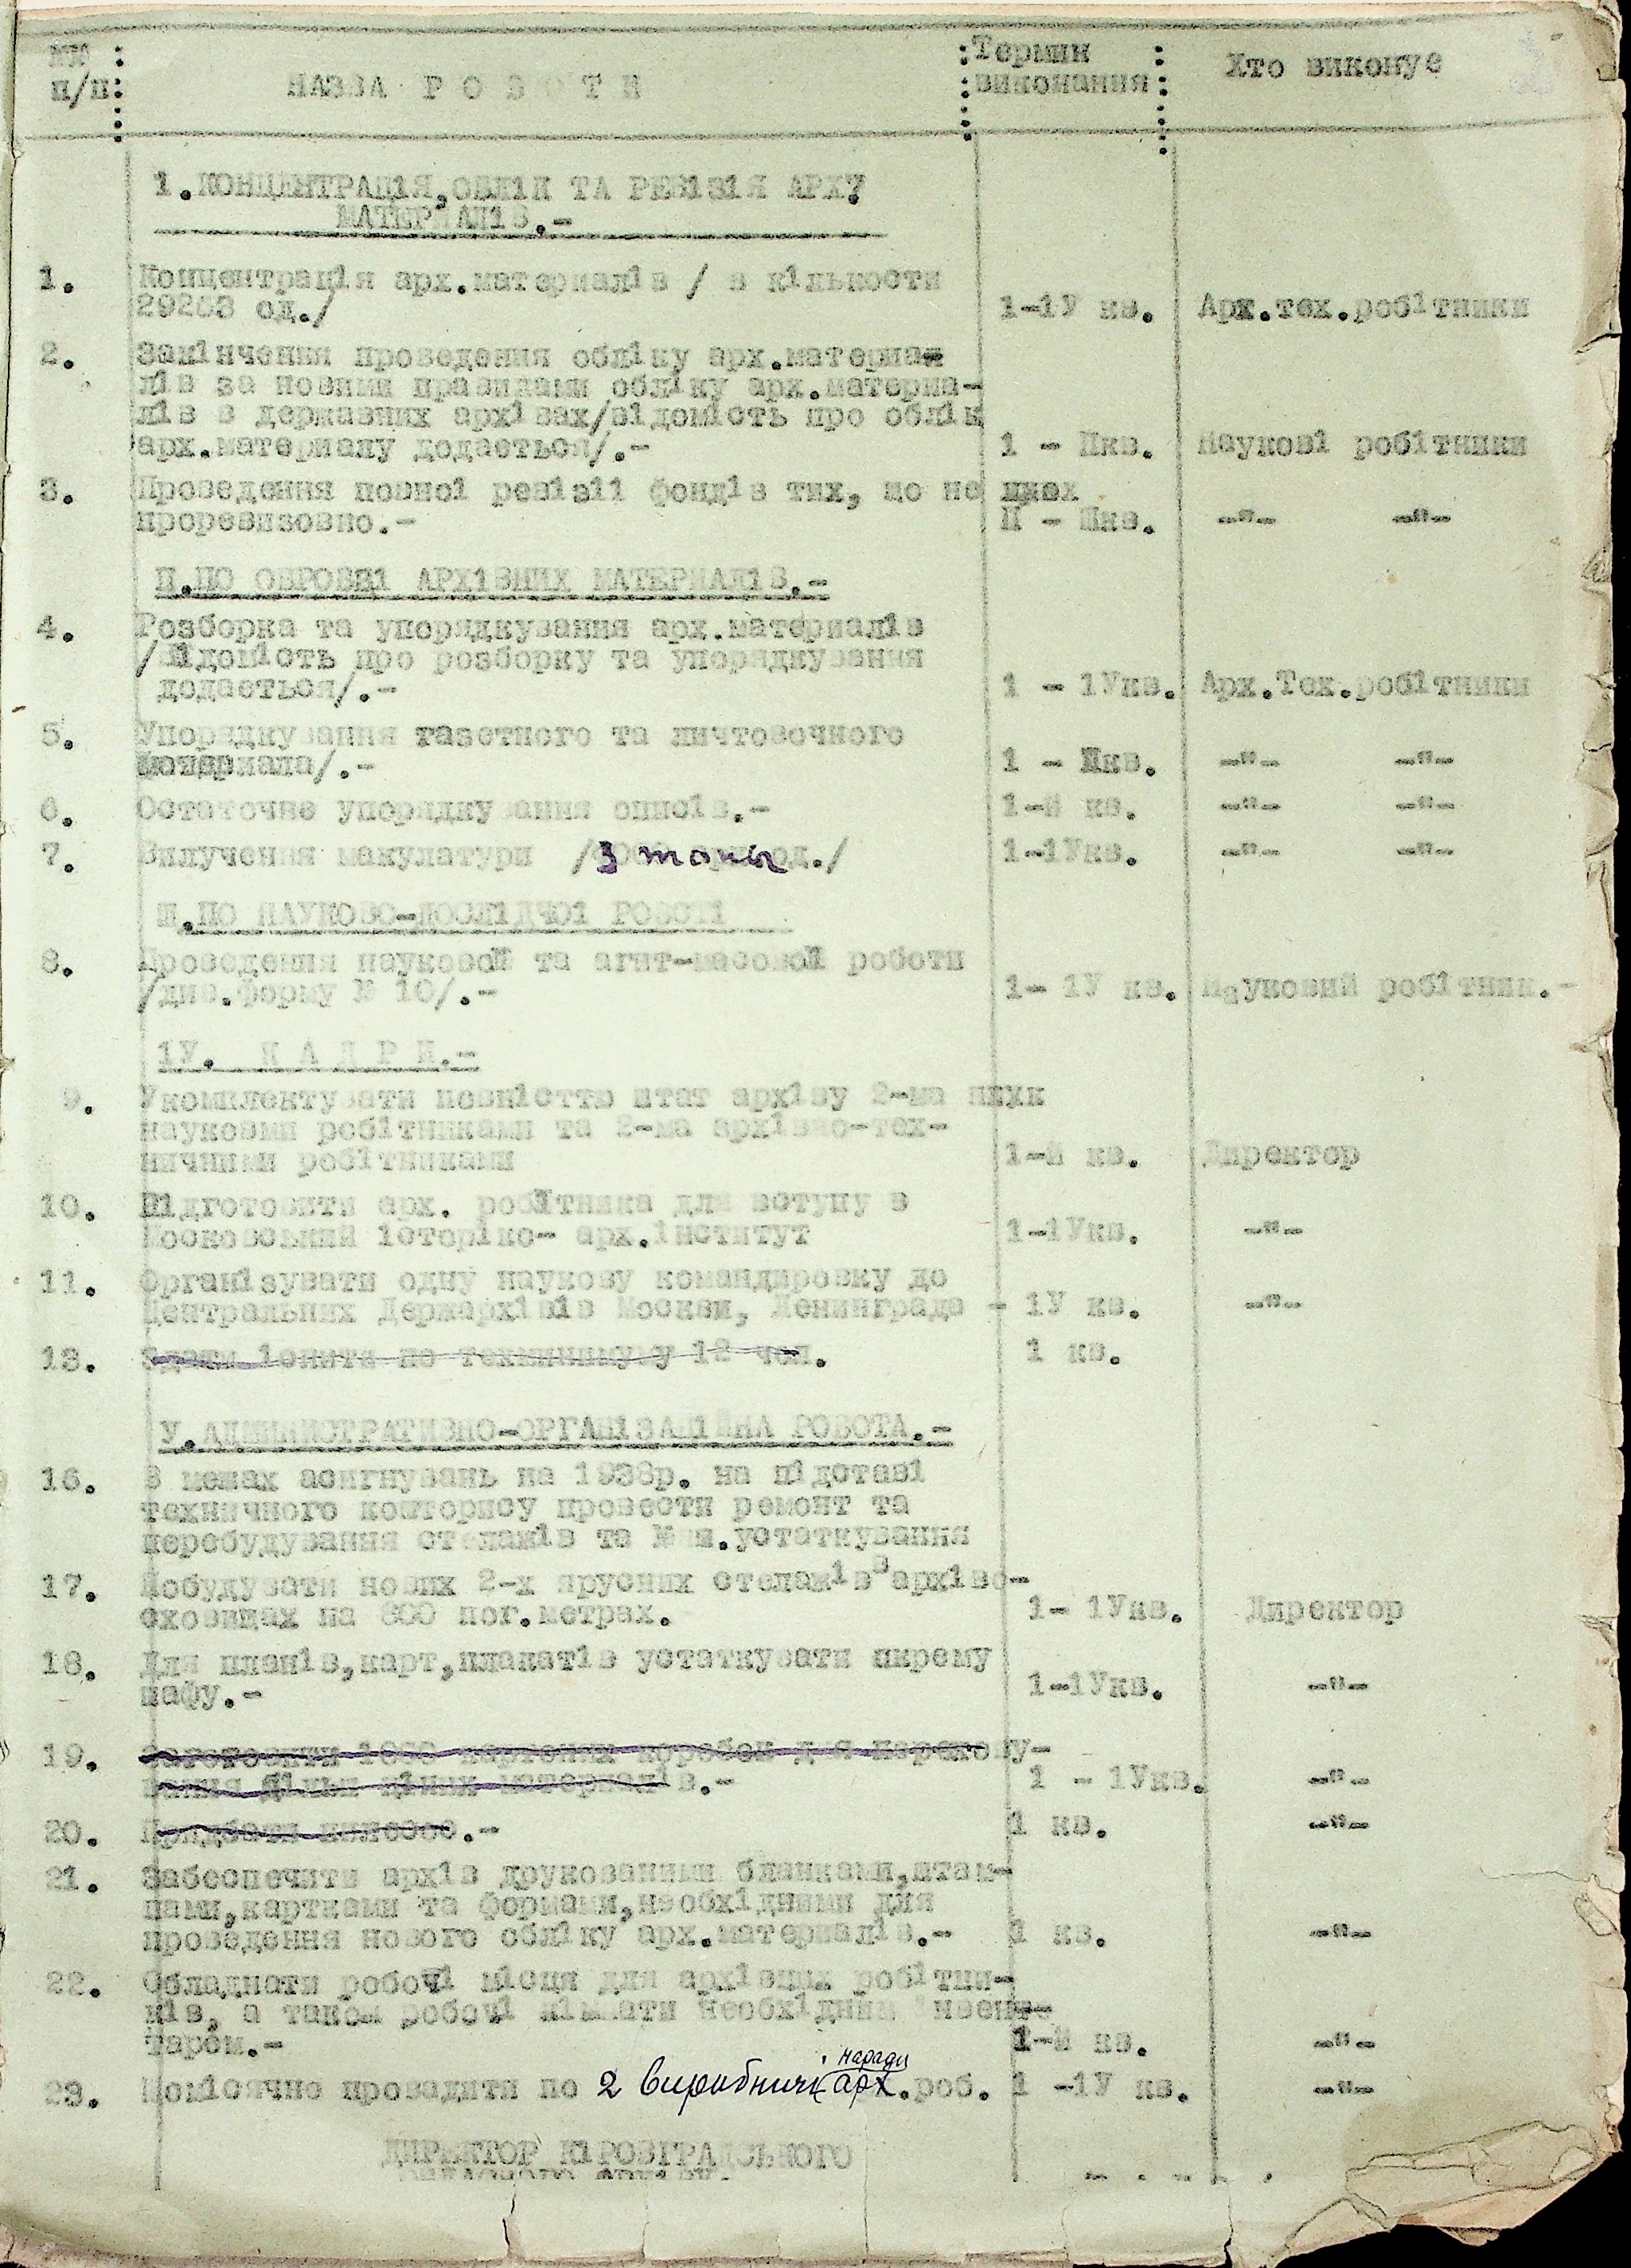 №№ п/п
НАЗВА Р О Б О Т И
Термин виконання
Хто виконує
1.КОНЦЕНТРАЦІЯ,ОБЛІК ТА РЕВІЗІЯ АРХ.
МАТЕРИАЛІВ.-
1. Концентрація арх.материалів / в кількости
29263 од./ 1-1У кв. Арх.тех.робітники
2. Закінчення проведення обліку арх.материа-
лів за новими правилами обліку арх.материа-
лів в державних архівах/відомість про облік
арх.материалу додається/.- 1 - Пкв. Наукові робітники
3. Проведення повної ревізії фондів тих, що не
проревизовно.- П - Шкв. -"- -"-
П.ПО ОБРОБЦІ АРХІВНИХ МАТЕРИАЛІВ.-
4. Розборка та упорядкування арх.материалів
/Відомість про розборку та упорядкування
додається/.- 1 - 1Укв. Арх.Тех.робітники
5. Упорядкування газетного та личтовочного
материала/.- 1 - Шкв. -"- -"-
6. Остаточне упорядкування описів.- 1-П кв. -"- -"-
7. Вилучення макулатури / 3 тоны од./ 1-1Укв. -"- -"-
Ш.ПО НАУКОВО-ДОСЛІДЧОІ РОБОТІ
8. Проведення наукової та агит-масової роботи
/див.форму № 10/.- 1- 1У кв. Науковий робітник.-
1У. К А Д Р И.-
9. Укомплектувати повністтю штат архіву 2-ма
науковми робітниками та 2-ма архівно-тех-
ничними робітниками 1-П кв. Директор
10. Підготовити арх. робітника для вступу в
Московський історіко- арх.інститут 1-1Укв. -"-
11. Організувати одну наукову командировку до
Центральних Держархівів Москви, Ленинграда - 1У кв. -"-
13. Здати іспити по технинімуму 12 чол. 1 кв.
У.АДМИНИСТРАТИВНО-ОРГАНІЗАЦІЙНА РОБОТА.-
16. В межах асигнувань на 1938р. на підставі
техничного кошторису провести ремонт та
перебудування стелажів та устаткування
17. Побудувати нових 2-х ярусних стелажів в архіво-
сховищах на 600 пог.метрах. 1- 1Укв. Директор
18. Для планів,карт,плакатів устаткувати окрему
шафу.- 1-1Укв. -"-
19. Заготовити 1000 картоних коробок для переховy-
вання цілых цінних материалів.- 1 - 1Укв. -"-
20. Придбати .- 1 кв. -"-
21. Забеспечити архів друкованими бланками,штам-
пами,картками та формами,необхідними для
проведення нового обліку арх.материалів.- 1 кв. -"-
22. Обладнати робочі місця для архівних робітни-
ків, а також робочі кімнати необхідним інвен-
таром.- 1-П кв. -"-
наради
23. Помісячно провадити по 2 виробничі арх.роб. 1 -1У кв. -"-
ДИРЕКТОР КІРОВІГРАДСЬКОГО
ОБЛАСНОГО АРХІВУ.-